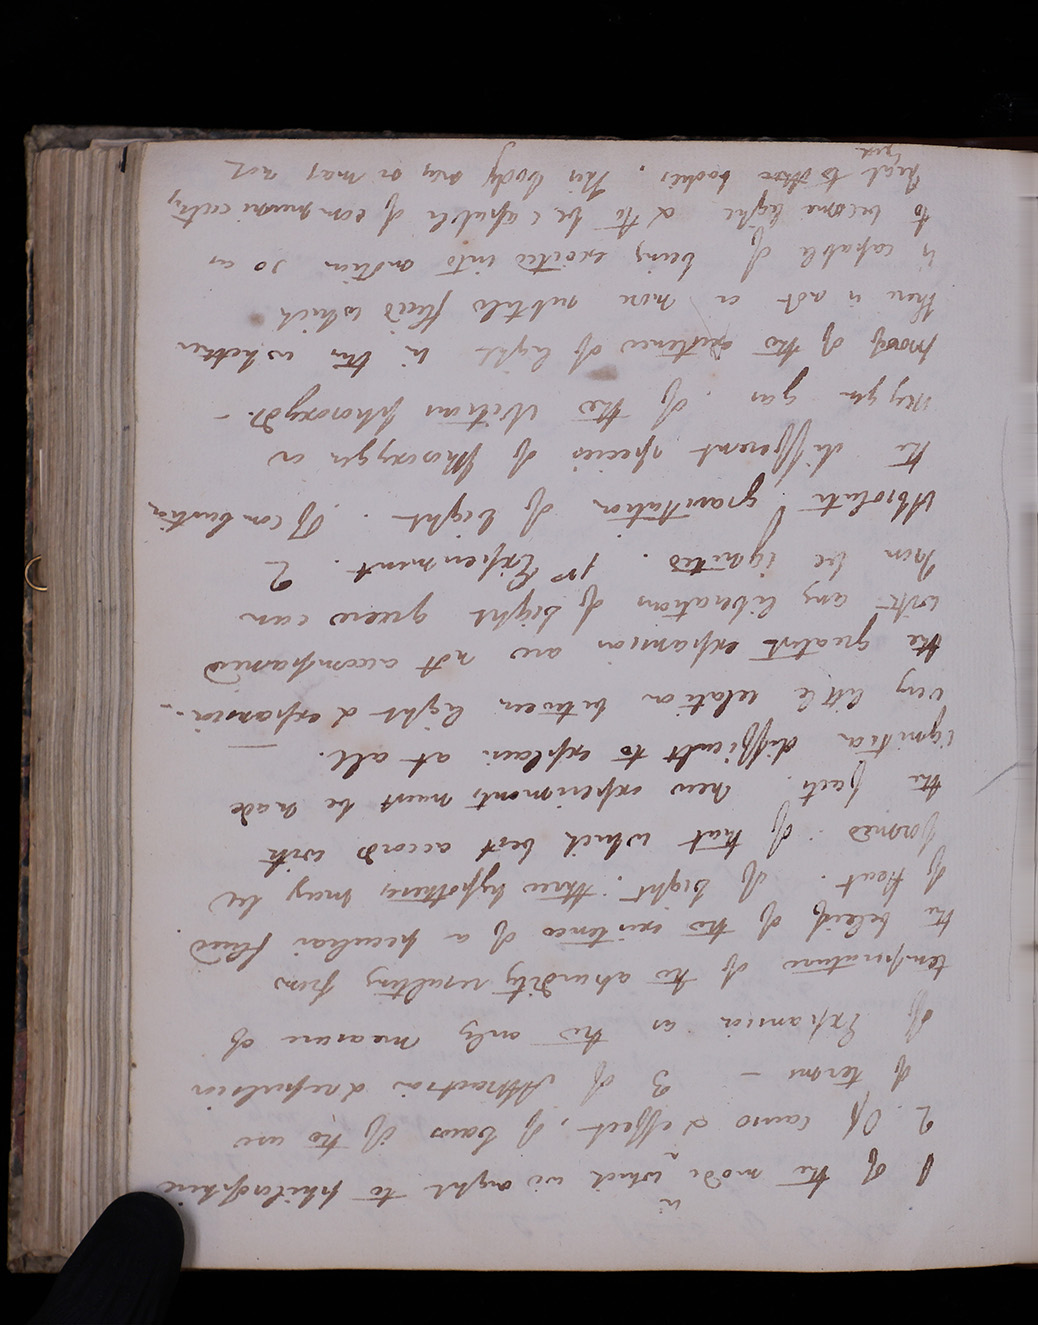 1 Of the mode in which we ought to philosophise
2. Of cause & effect, of Laws of the use
of terms – 3 of Attraction & repulsion
Of Expansion as the only measure of
temperature of the absurdity resulting from
the beleif of the existence of a peculiar fluid
of heat. of Light. three hypotheses may be
formed. of that which best accords with
the facts. new experiments must be made
ignition difficult to explain at all.
very little relation between light & expansion. –
the greatest expansion are not accompanied
with any liberations of Light gueew can
Iron be ignited. pr Experiment. 2
Absolute gravitation of Light. Of combustion
the different species of Phosoxygen or
oxygen gas. of the Nitrous phosoxyd. –
proof of the existence of light is this whether
there is not a more subtile fluid which
is capable of being excited into motion so as
to become light & to be capable of communicating
heat to bodies. This body may or may not
yet